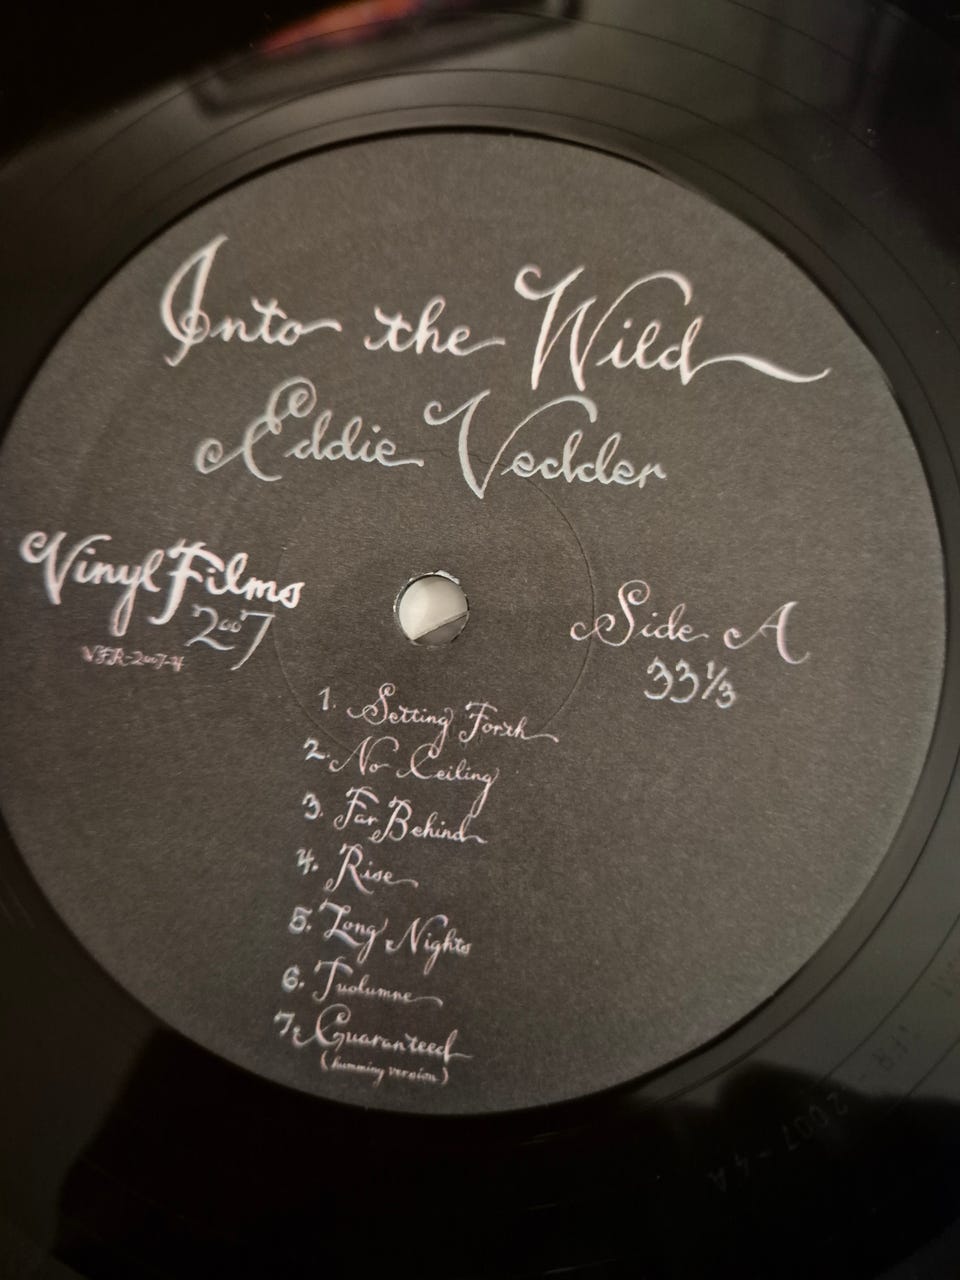 Into the Wild
Eddie Vedder
Vinyl Films
2007
VFR-2007-4
Side A
33 1/3
1. Setting Forth
2. No Ceiling
3. Far Behind
4. Rise
5. Long Nights
6. Tuolumne
7. Guaranteed
(humming version)
2007-4A